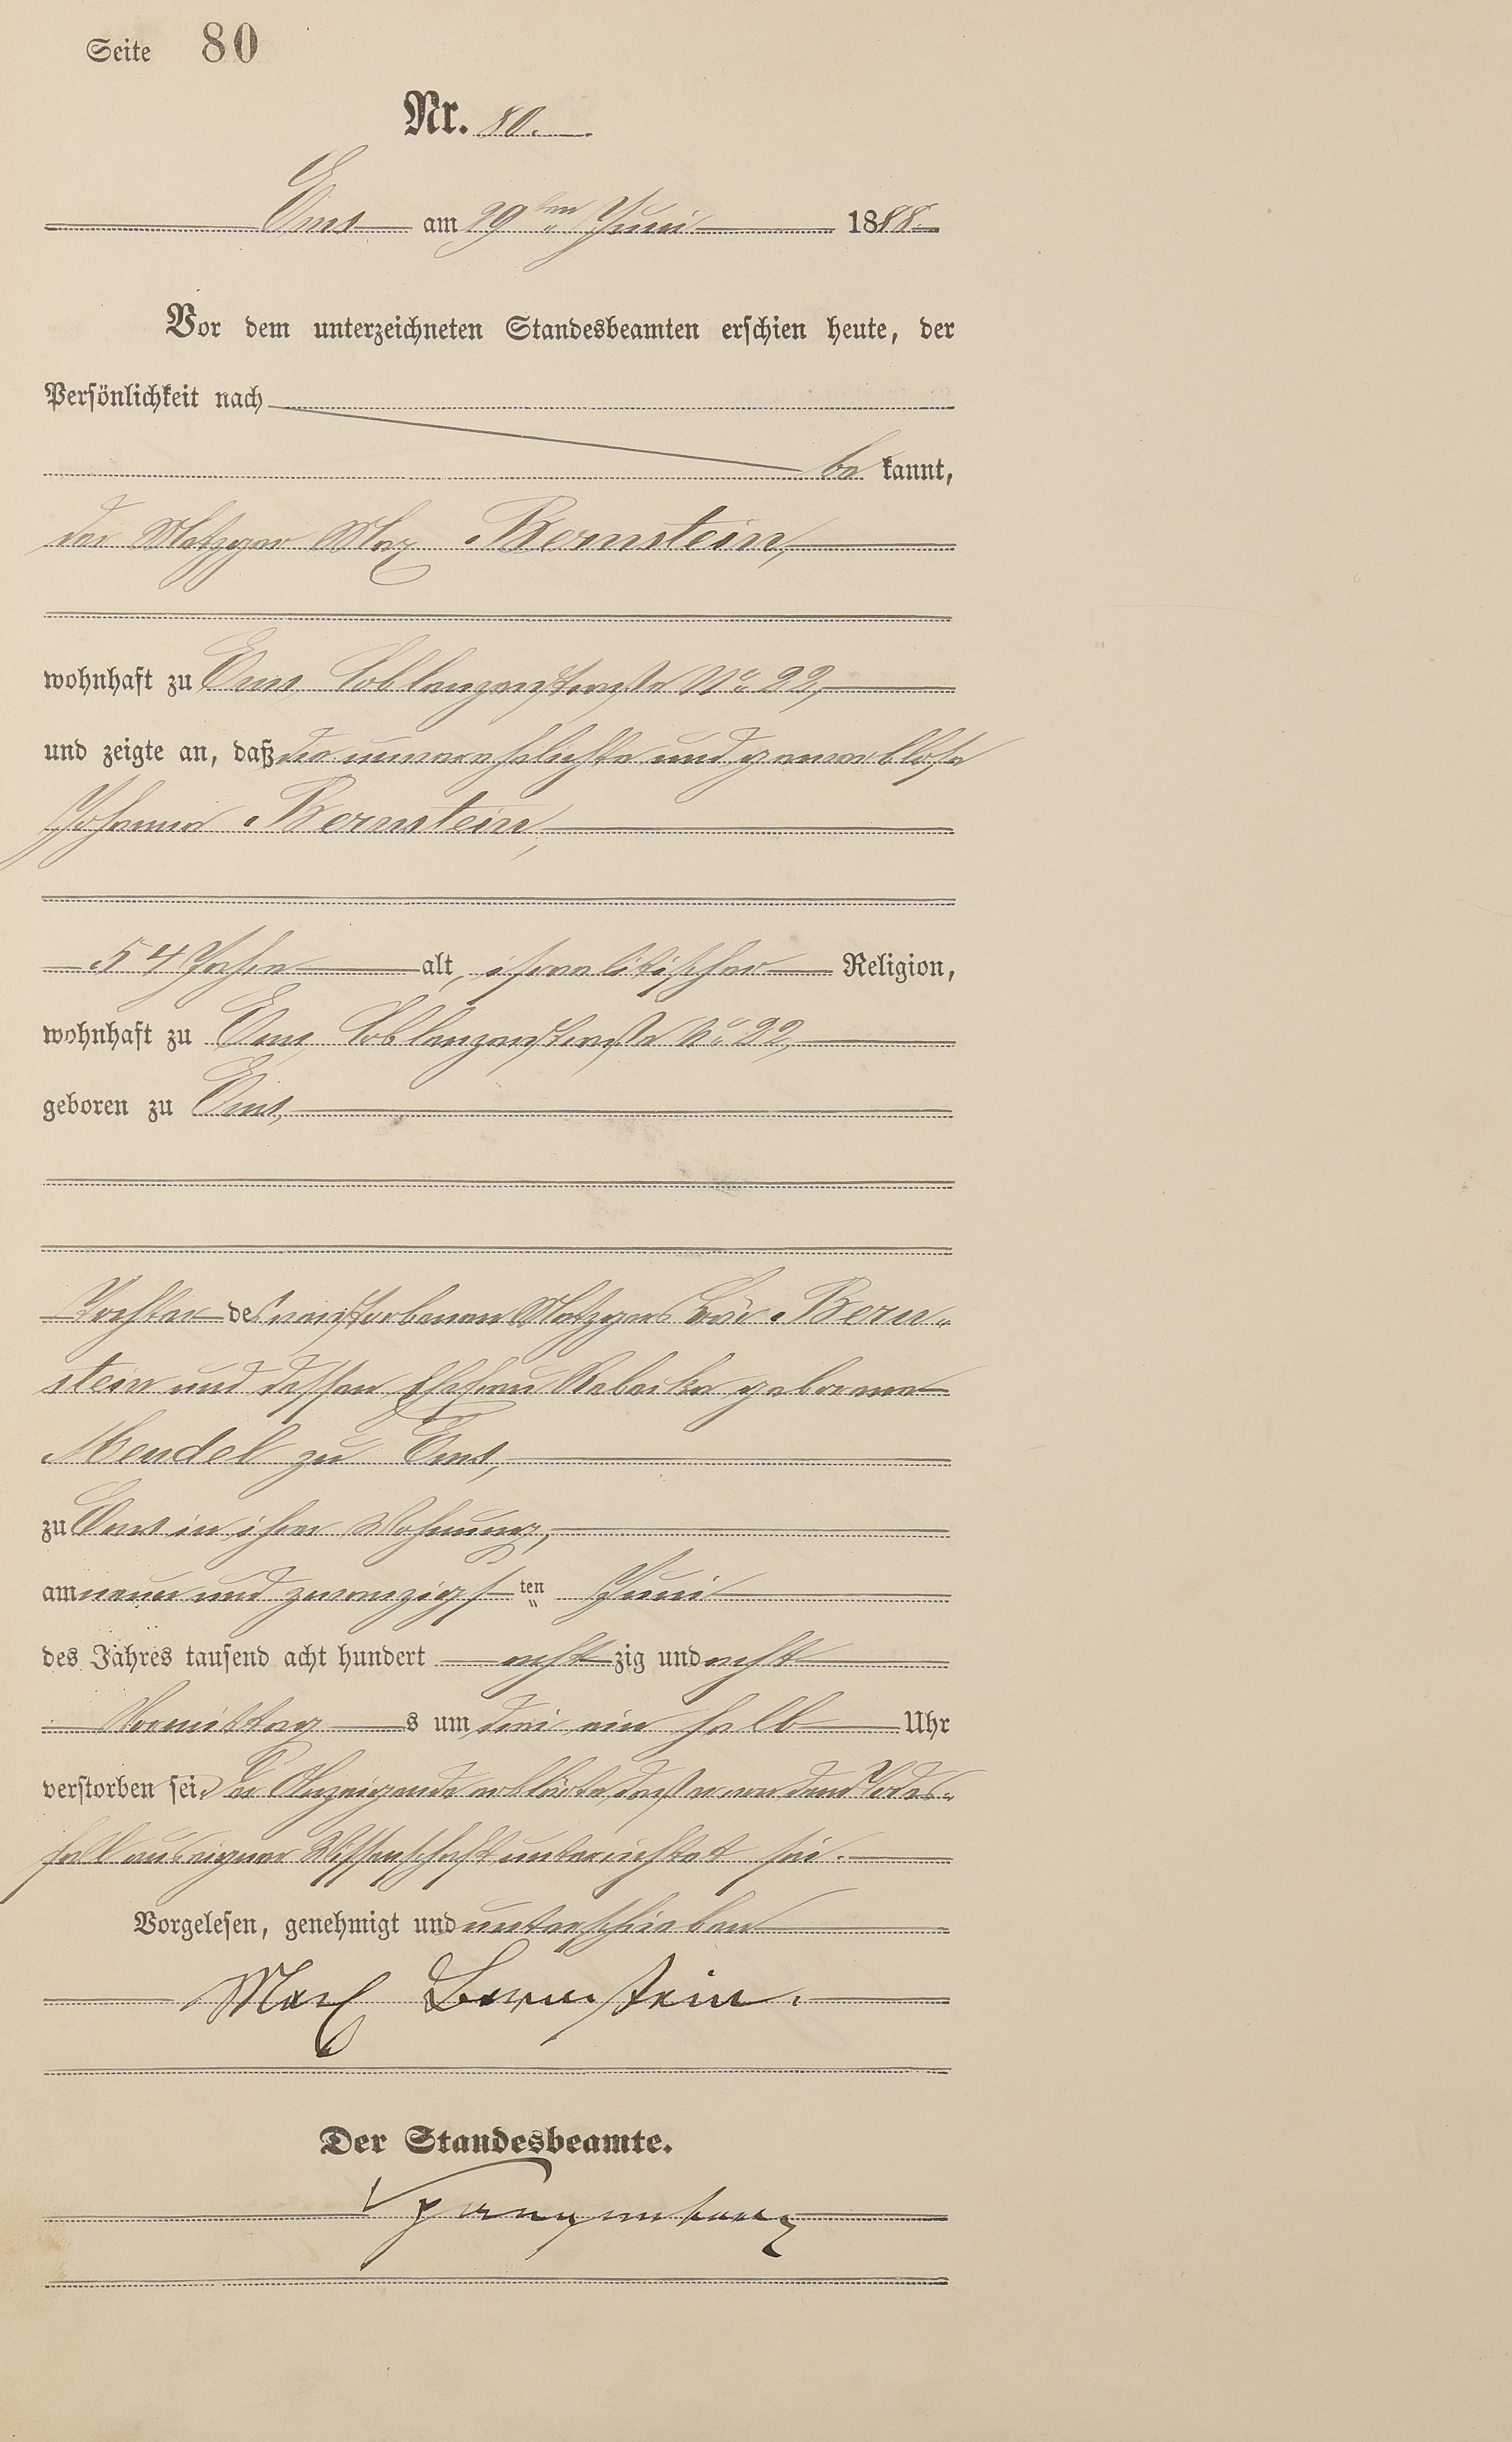 Seite 80
Nr. 80.
Ems am 29ten Juni 1888.
Vor dem unterzeichneten Standesbeamten erschien heute, der
Persönlichkeit nach
be kannt,
der Metzger Max Bernstein,
wohnhaft zu Ems, Coblenzerstraße No 22,
und zeigte an, daß die unverehelichte und gewerblose
Johanna Bernstein,
54 Jahre alt, israelitischer Religion,
wohnhaft zu Ems, Coblenzerstraße No 22,
geboren zu Ems,
Tochter des verstorbenen Metzgers Bern-
stein und dessen Ehefrau Rebecka geborene
Mendel zu Ems,
zu Ems in ihrer Wohnung,
am neun und zwanzigs ten Juni
des Jahres tausend acht hundert acht zig und acht
Vormittag s um drei ein halb Uhr
verstorben sei. Der Anzeigende erklärte, daß er von dem Todes-
fall aus eigner Wissenschaft unterrichtet sei.
Vorgelesen, genehmigt und unterschrieben
Max Bernstein.
Der Standesbeamte.